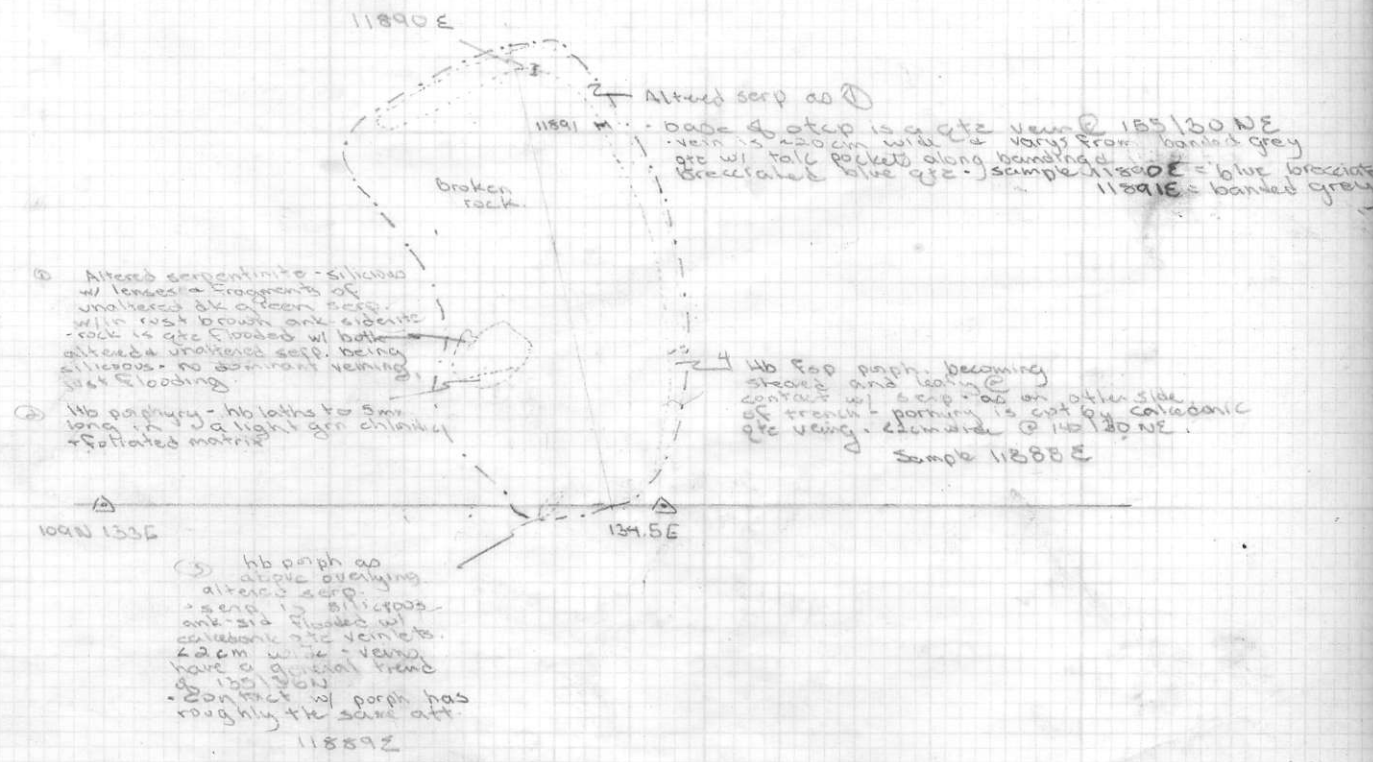 11890E
Altered serp as ①
11891
- base of otcp is a qtz vein @ 155/30 NE
- vein is ~20cm wide & varys from banded grey
qtz w/ talc pockets along banding &
brecciated blue qtz - sample 11890E = blue brecciate
11891E = banded grey
broken
rock.
① Altered serpentinite - silicious
w/ lenses & fragments of
unaltered dk green serp.
w/in rust brown ank-siderite
- rock is qtz flooded w/ both
altered & unaltered serp. being
silicious - no dominant veining,
just flooding
② Hb porphyry - hb laths to 5mm
long in a light grn chloritic
+ foliated matrix
4 Hb Fsp porph. becoming
sheared and leafy @
contact w/ serp. as on other side
of trench - porphyry is cut by calcedonic
qtz veins. <2cm wide @ 140/30 NE.
Sample 11888E
109N 133E
134.5E
③ hb porph as
above overlying
altered serp.
- serp is silicious
ank-sid flooded w/
calcedonic qtz veinlets.
<2cm wide - veins
have a general trend
of
- contact w/ porph has
roughly the same att.
11889E